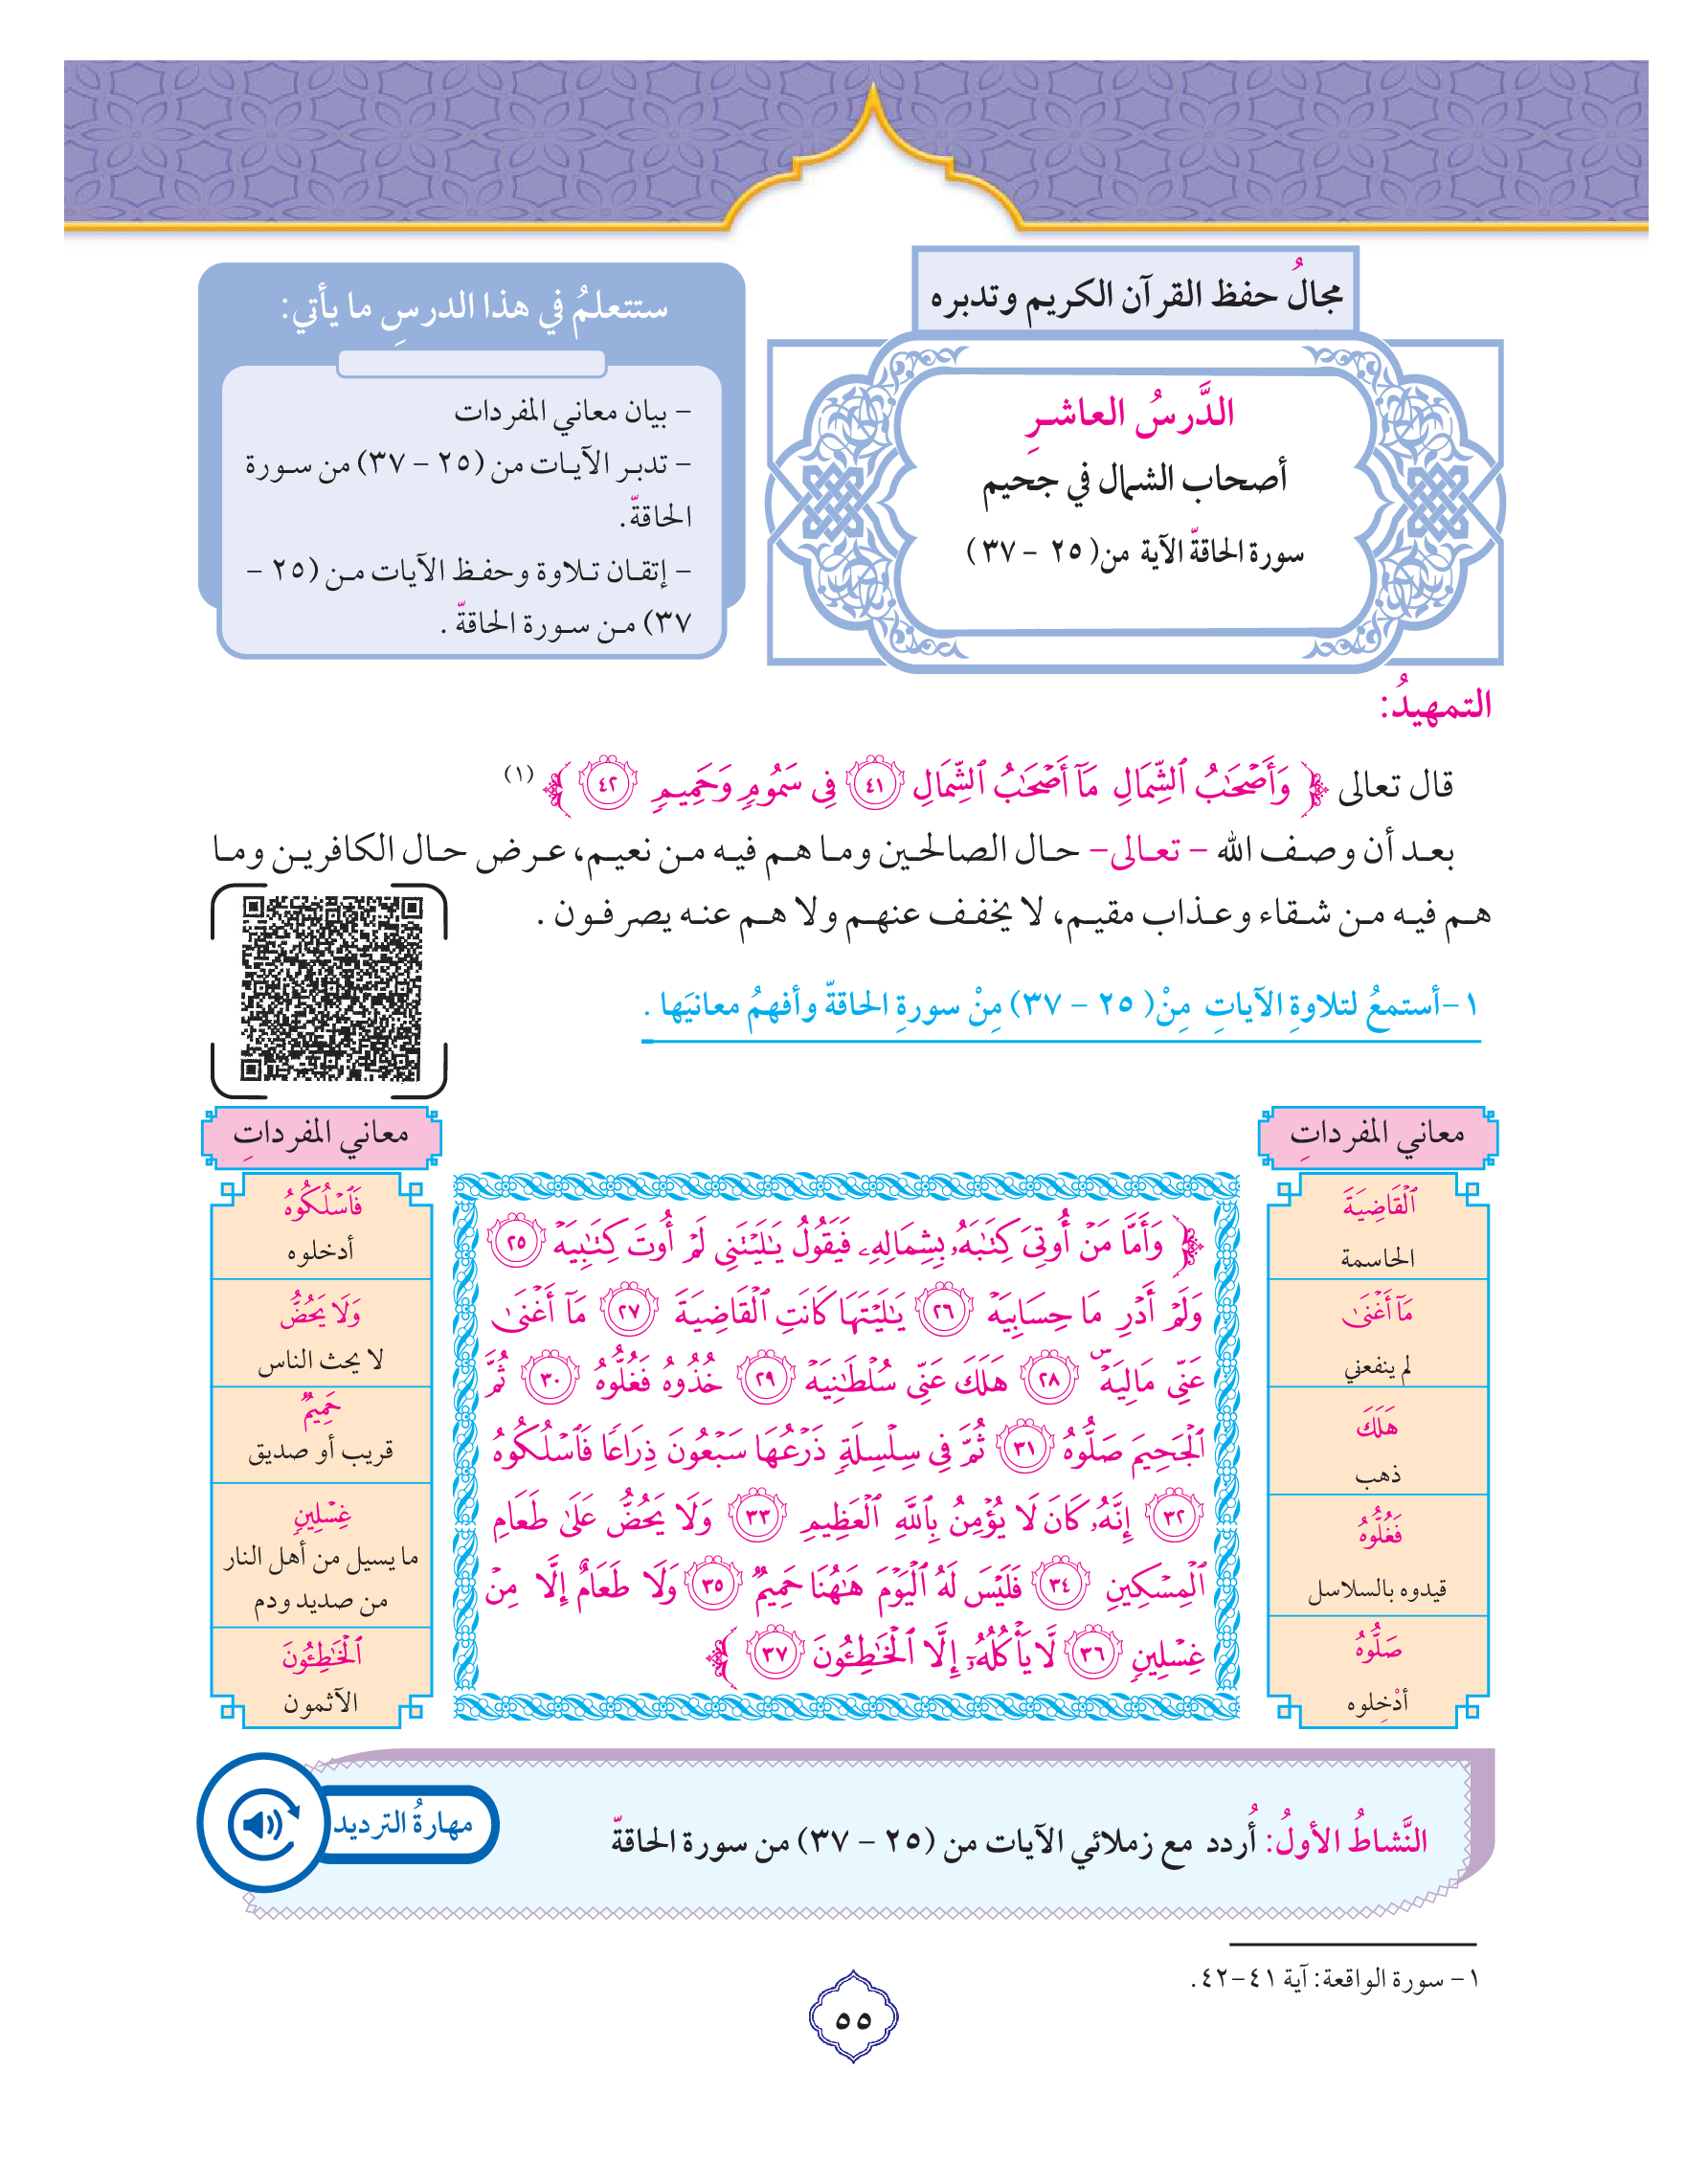 مجالُ حفظ القرآن الكريم وتدبره
الدَّرسُ العاشرِ
أصحاب الشمال في جحيم
سورة الحاقةّ الآية من( ٢٥ - ٣٧ )
ستتعلمُ في هذا الدرسِ ما يأتي:
- بيان معاني المفردات
- تدبر الآيات من (٢٥ - ٣٧) من سورة
الحاقةّ.
- إتقان تلاوة وحفظ الآيات من (٢٥ -
٣٧) من سورة الحاقةّ .
التمهيدُ:
قال تعالى ﴿ وَأَصْحَٰبُ ٱلشِّمَالِ مَآ أَصْحَٰبُ ٱلشِّمَالِ ٤١ فِى سَمُومٍ وَحَمِيمٍ ٤٢ ﴾ (١)
بعد أن وصف الله - تعالى- حال الصالحين وما هم فيه من نعيم، عرض حال الكافرين وما
هم فيه من شقاء وعذاب مقيم، لا يخفف عنهم ولا هم عنه يصرفون .
١-أستمعُ لتلاوةِ الآياتِ مِنْ( ٢٥ - ٣٧) مِنْ سورةِ الحاقةّ وأفهمُ معانيَها .
معاني المفرداتِ
ٱلْقَاضِيَةَ
الحاسمة
مَآ أَغْنَىٰ
لم ينفعني
هَلَكَ
ذهب
فَغُلُّوهُ
قيدوه بالسلاسل
صَلُّوهُ
أدْخِلوه
﴿ وَأَمَّا مَنْ أُوتِىَ كِتَٰبَهُۥ بِشِمَالِهِۦ فَيَقُولُ يَٰلَيْتَنِى لَمْ أُوتَ كِتَٰبِيَهْ ٢٥
وَلَمْ أَدْرِ مَا حِسَابِيَهْ ٢٦ يَٰلَيْتَهَا كَانَتِ ٱلْقَاضِيَةَ ٢٧ مَآ أَغْنَىٰ
عَنِّى مَالِيَهْۜ ٢٨ هَلَكَ عَنِّى سُلْطَٰنِيَهْ ٢٩ خُذُوهُ فَغُلُّوهُ ٣٠ ثُمَّ
ٱلْجَحِيمَ صَلُّوهُ ٣١ ثُمَّ فِى سِلْسِلَةٍ ذَرْعُهَا سَبْعُونَ ذِرَاعًا فَٱسْلُكُوهُ
٣٢ إِنَّهُۥ كَانَ لَا يُؤْمِنُ بِٱللَّهِ ٱلْعَظِيمِ ٣٣ وَلَا يَحُضُّ عَلَىٰ طَعَامِ
ٱلْمِسْكِينِ ٣٤ فَلَيْسَ لَهُ ٱلْيَوْمَ هَٰهُنَا حَمِيمٌ ٣٥ وَلَا طَعَامٌ إِلَّا مِنْ
غِسْلِينٍ ٣٦ لَّا يَأْكُلُهُۥٓ إِلَّا ٱلْخَٰطِـُٔونَ ٣٧ ﴾
معاني المفرداتِ
فَٱسْلُكُوهُ
أدخلوه
وَلَا يَحُضُّ
لا يحث الناس
حَمِيمٌ
قريب أو صديق
غِسْلِينٍ
ما يسيل من أهل النار
من صديد ودم
ٱلْخَٰطِـُٔونَ
الآثمون
النَّشاطُ الأولُ: أُردد مع زملائي الآيات من (٢٥ - ٣٧) من سورة الحاقةّ
مهارةُ الترديد
١- سورة الواقعة: آية ٤١-٤٢.
٥٥